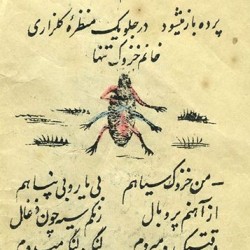 پرده باز میشود در جلو یک منظرهٔ گلزاری
خانم خزوک تنها
ـ من خزوک سیاهم بی یار و بی پناهم
از آهنم پر و بال رنگم سیه چون ذغال